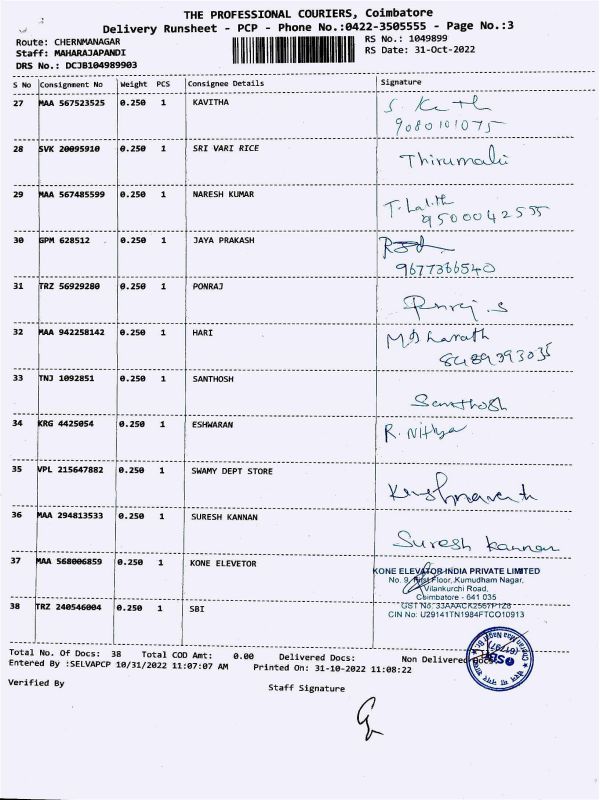 THE PROFESSIONAL COURIERS, Coimbatore
Delivery Runsheet - PCP - Phone No.:0422-3505555 - Page No.:3
Route: CHERNMANAGAR
RS No.: 1049899
Staff: MAHARAJAPANDI
RS Date: 31-Oct-2022
DRS No.: DCJB104989903
S No Consignment No Weight PCS Consignee Details Signature
27 MAA 567523525 0.250 1 KAVITHA
9080101075
28 SVK 20095910 0.250 1 SRI VARI RICE
29 MAA 567485599 0.250 1 NARESH KUMAR T. Lalith
9500042555
30 GPM 628512 0.250 1 JAYA PRAKASH
9677366540
31 TRZ 56929280 0.250 1 PONRAJ
32 MAA 942258142 0.250 1 HARI
8489393035
33 TNJ 1092851 0.250 1 SANTHOSH Santhosh
34 KRG 4425054 0.250 1 ESHWARAN R. Nithya
35 VPL 215647882 0.250 1 SWAMY DEPT STORE
36 MAA 294813533 0.250 1 SURESH KANNAN Suresh kannan
37 MAA 568006859 0.250 1 KONE ELEVETOR KONE ELEVATOR INDIA PRIVATE LIMITED
No. 9, First Floor, Kumudham Nagar,
Vilankurchi Road,
Coimbatore - 641 035
GST No: 33AAACK2567P1Z6
CIN No: U29141TN1984FTCO10913
38 TRZ 240546004 0.250 1 SBI
Total No. Of Docs: 38 Total COD Amt: 0.00 Delivered Docs: Non Delivered Docs:
Entered By :SELVAPCP 10/31/2022 11:07:07 AM Printed On: 31-10-2022 11:08:22
Verified By
Staff Signature